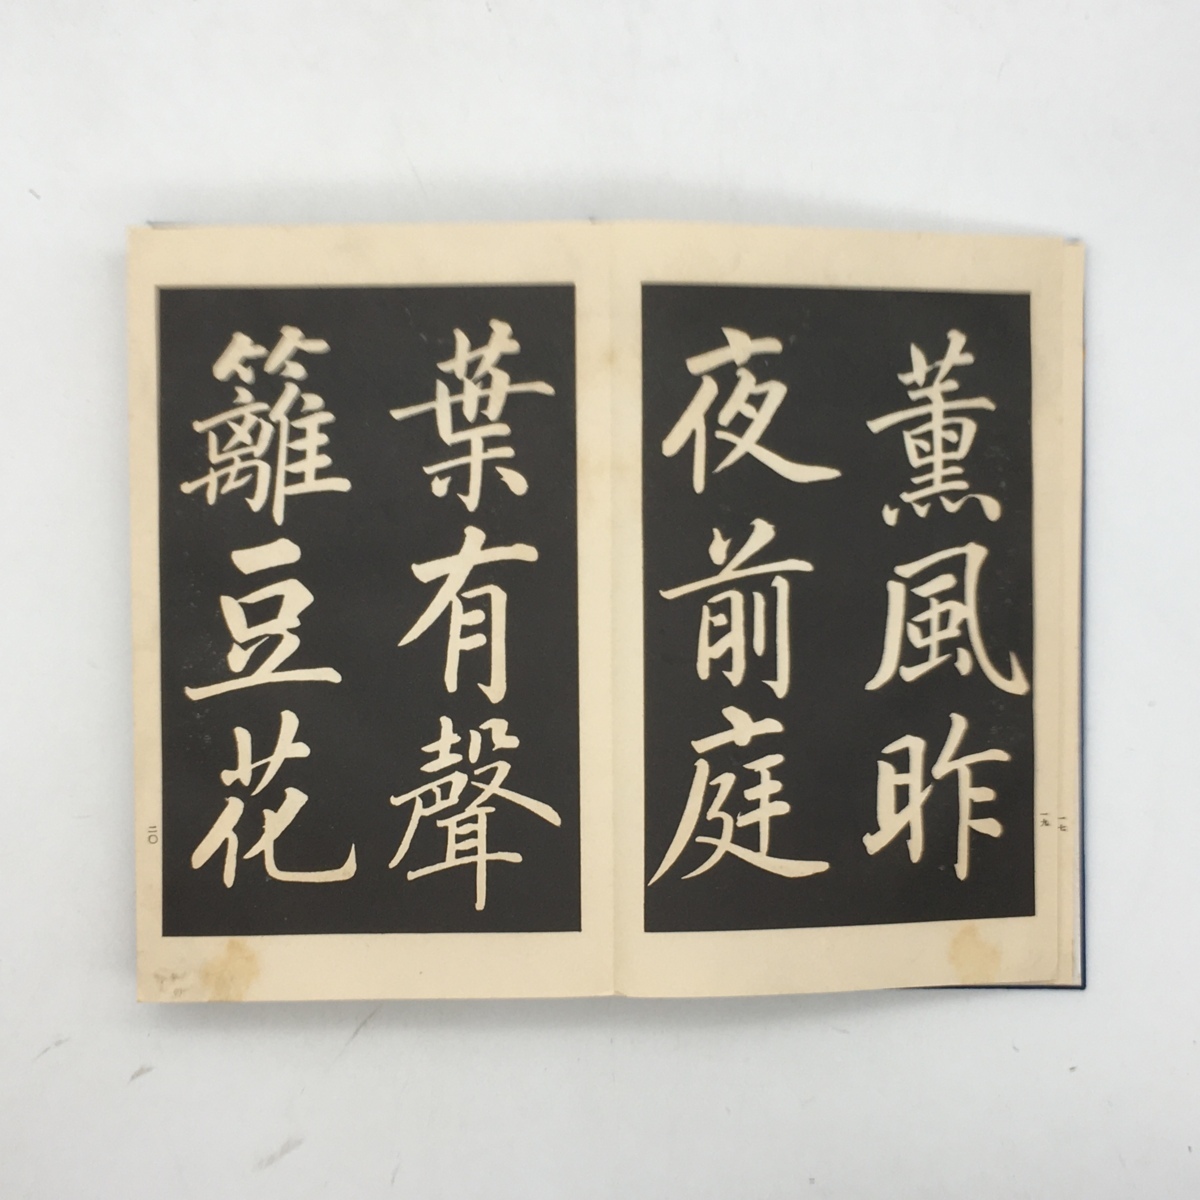 薫風昨
夜前庭
葉有聲
籬豆花
一七
一九
二〇